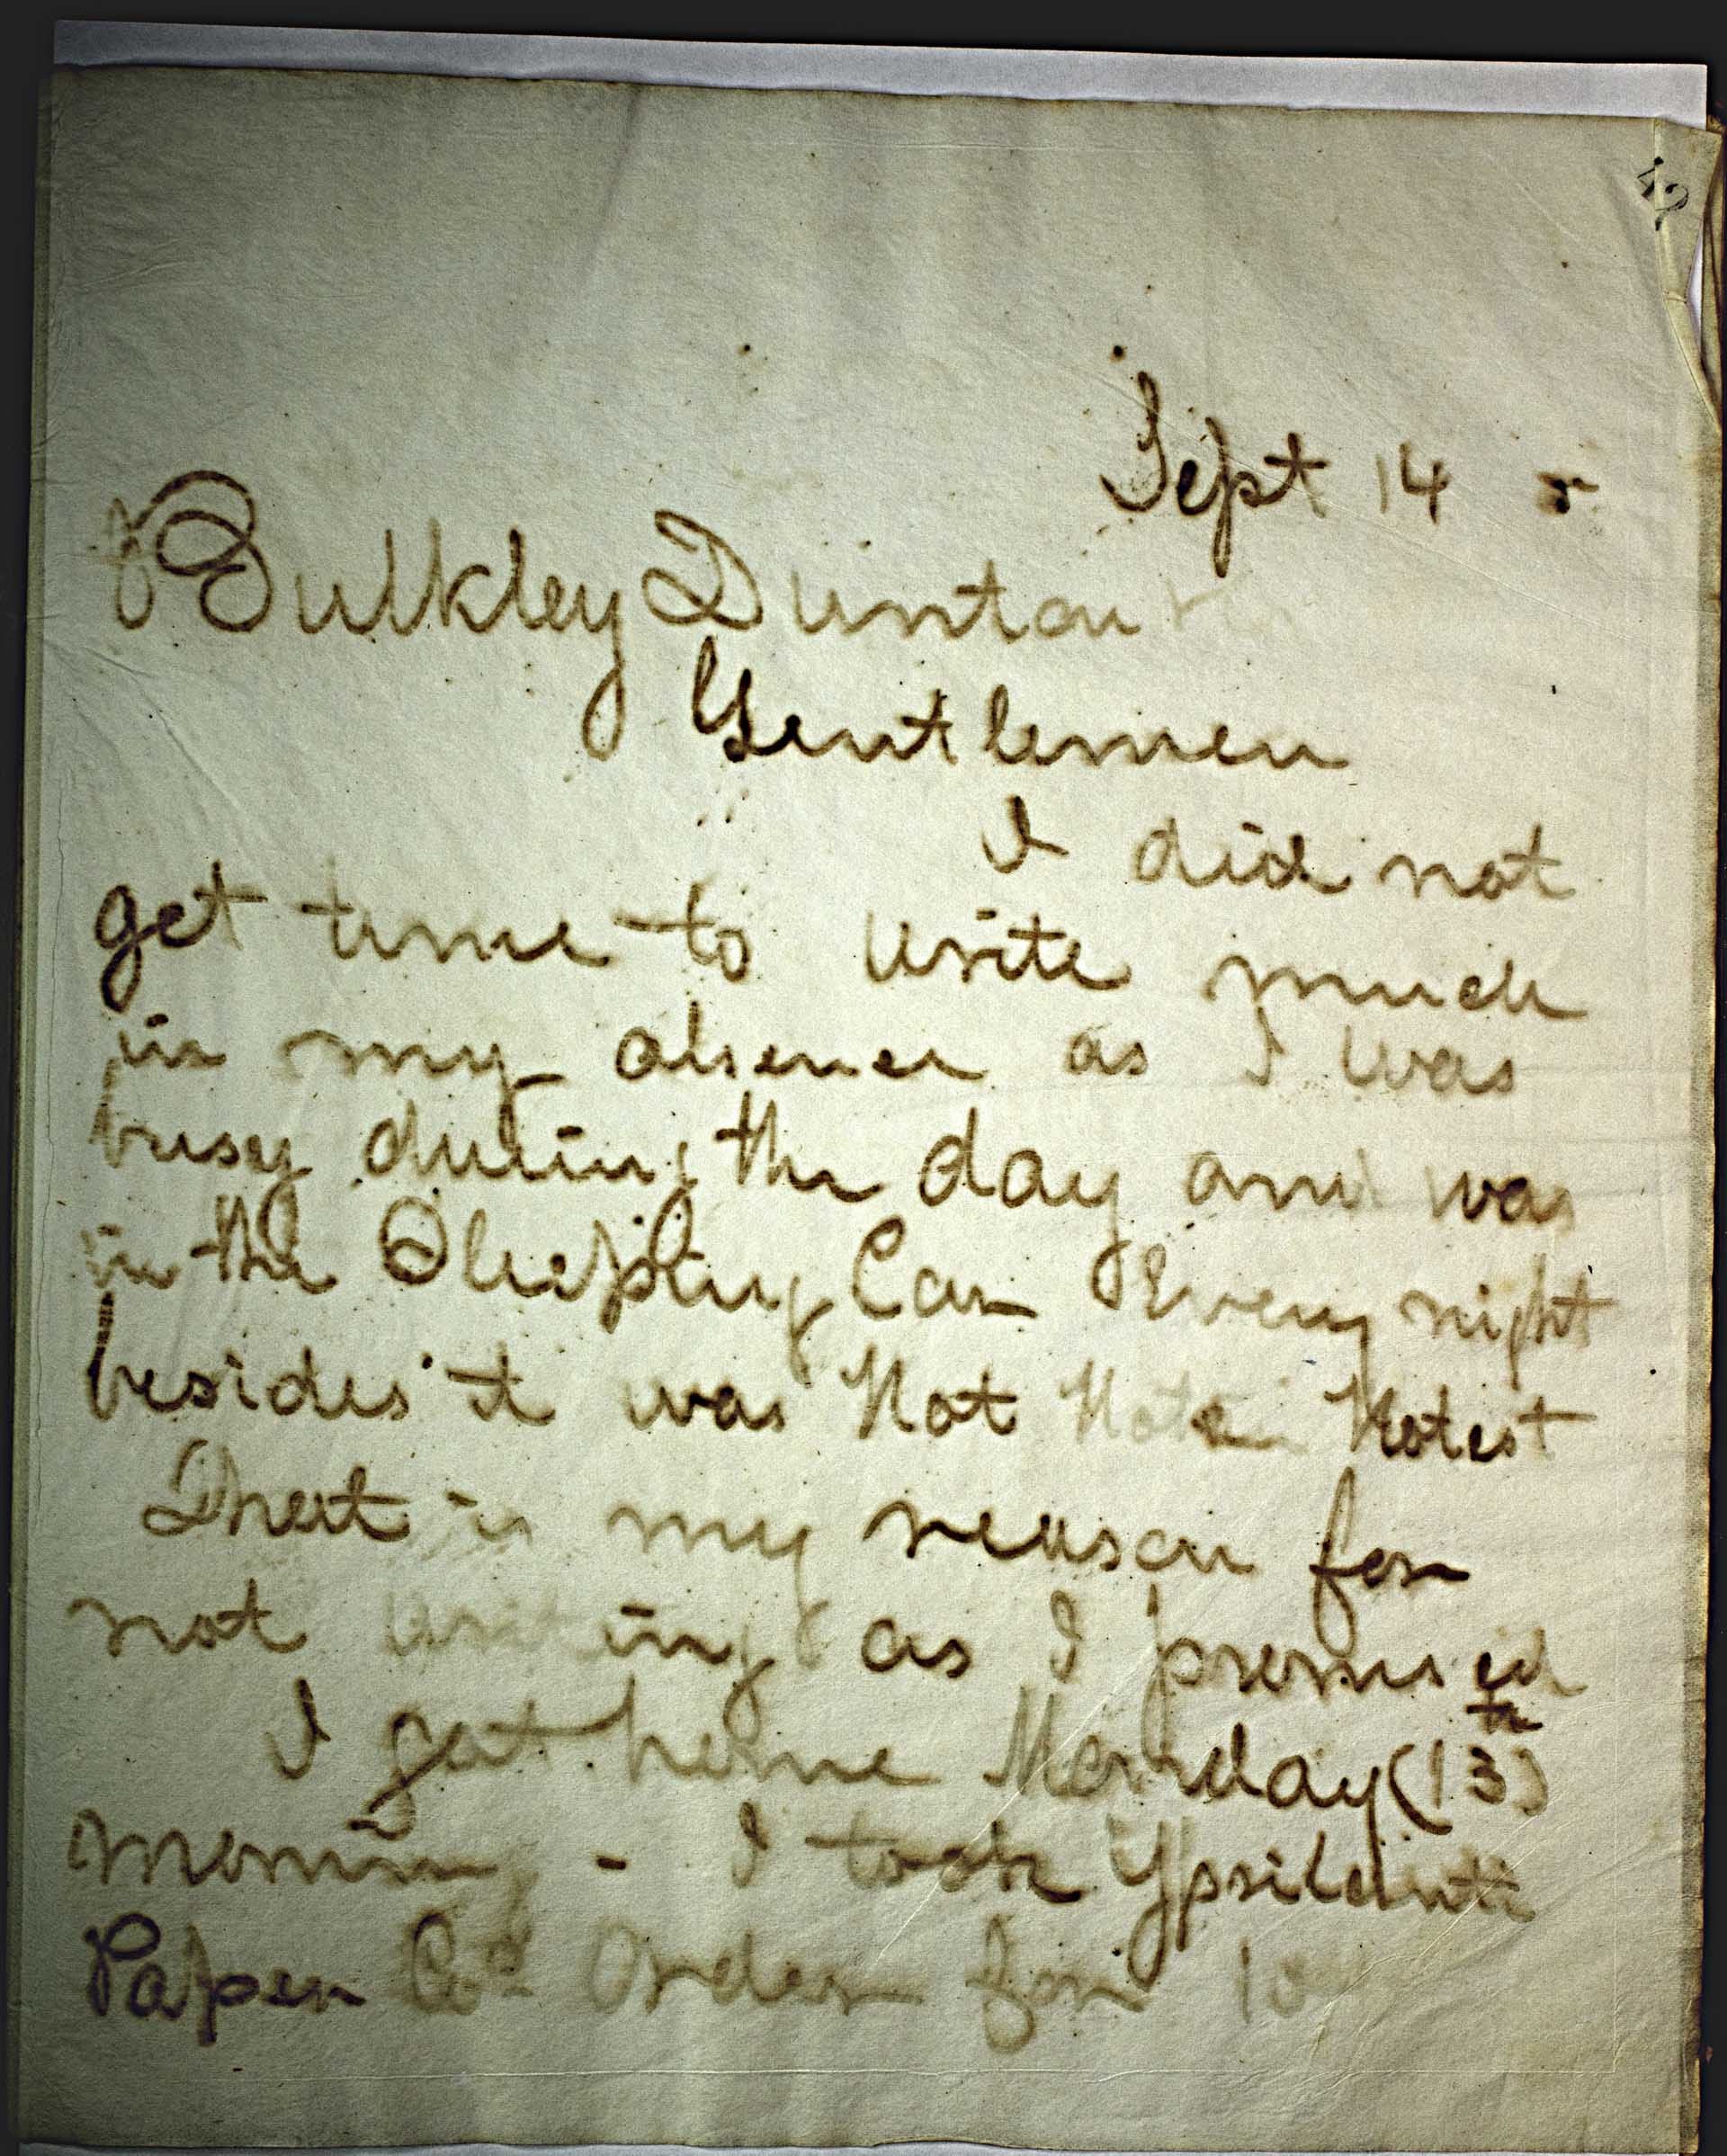 42
Sept 14
Bulkley Dunton
Gentlemen
I did not
get time to write much
in my absence as I was
busy during the day and was
in the Sleeping Car Every night
besides it was Hot Hotest
That is my reason for
not writing as I promised
I got home Monday (13th)
morning - I took Ypsilanti
Paper Co Order for 10